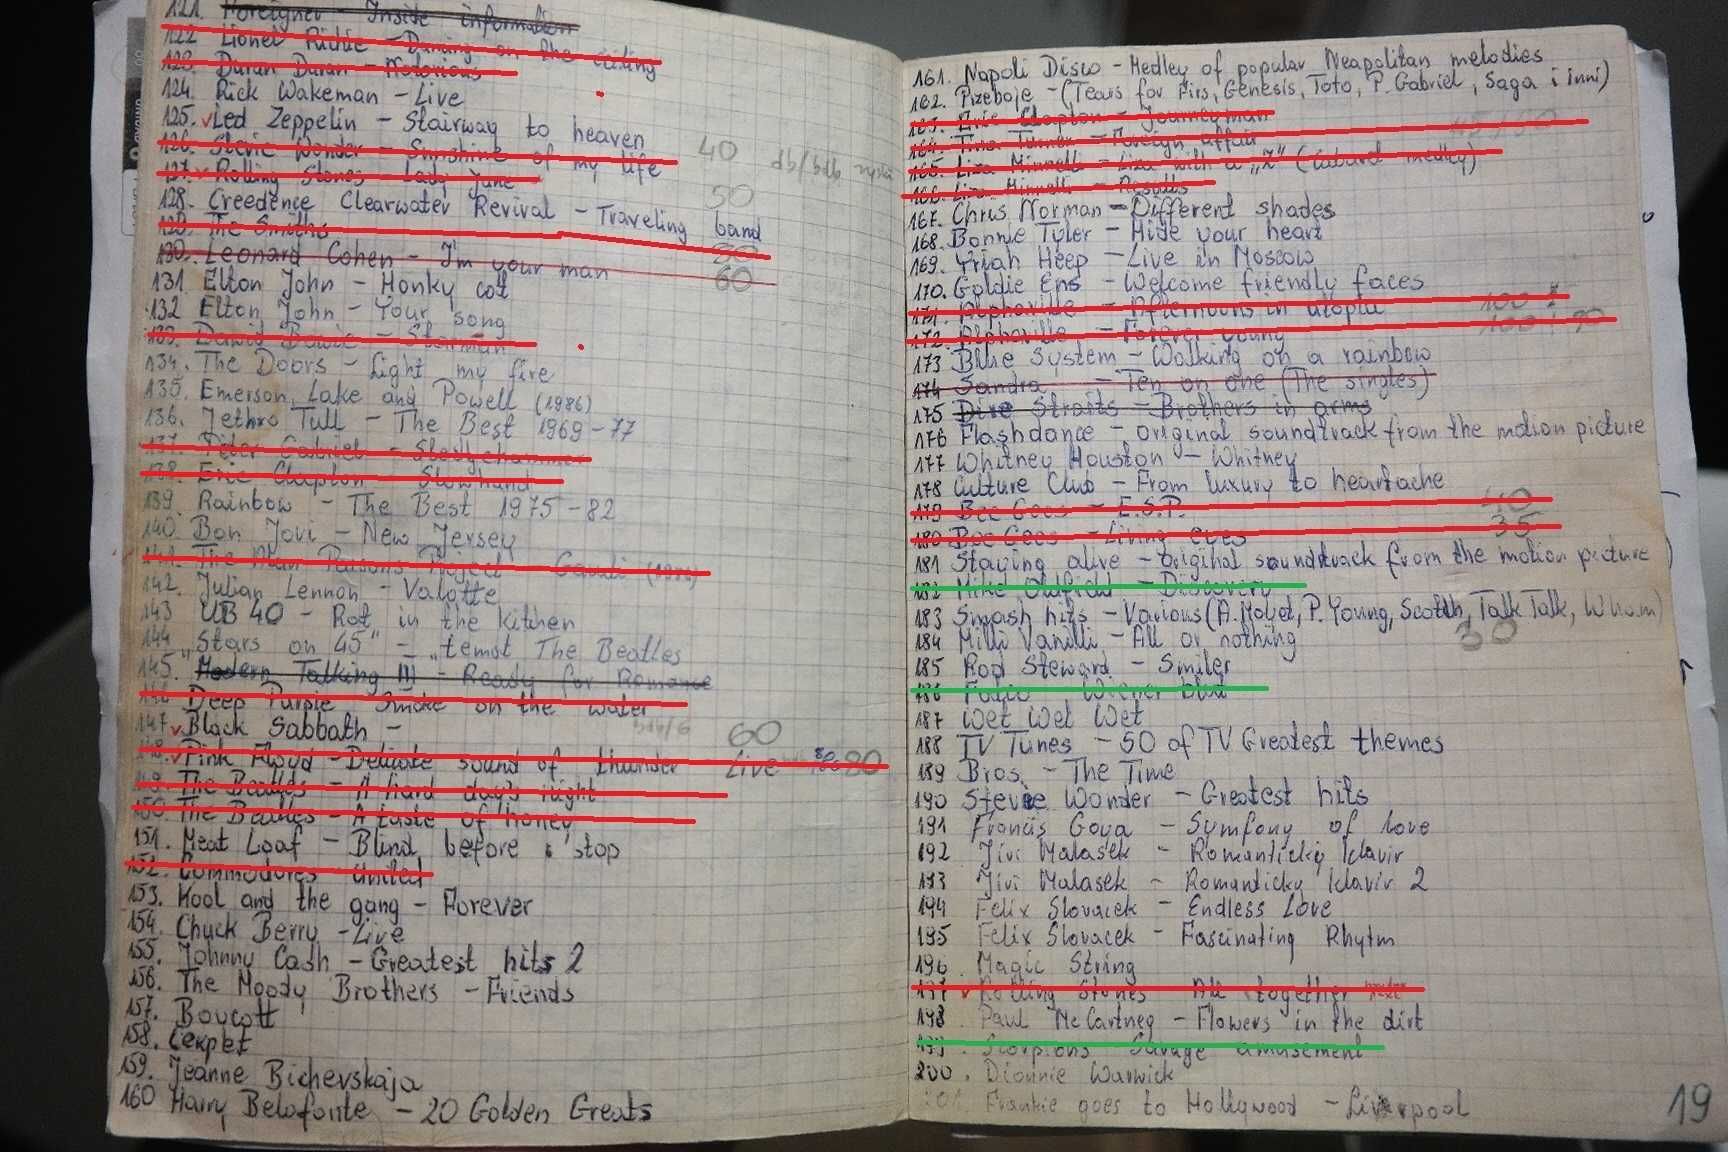 121. Foreigner - Inside information
122. Lionel Richie - Dancing on the ceiling
123. Duran Duran - Notorious
124. Rick Wakeman - Live
125. Led Zeppelin - Stairway to heaven
126. Stevie Wonder - Sunshine of my life 40
127. Rolling Stones - Lady Jane
128. Creedence Clearwater Revival - Traveling band 50
129. The Smiths
130. Leonard Cohen - I'm your man 60
131. Elton John - Honky cat
132 Elton John - Your song
133. David Bowie - Starman
134. The Doors - Light my fire
135. Emerson, Lake and Powell (1986)
136. Jethro Tull - The Best 1969-77
137. Peter Gabriel - Sledgehammer
138. Eric Clapton - Slowhand
139. Rainbow - The Best 1975-82
140. Bon Jovi - New Jersey
141. The Alan Parsons Project - Gaudi
142. Julian Lennon - Valotte
143 UB 40 - Rat in the kitchen
144 "Stars on 45" - "temat The Beatles
145. Modern Talking III - Ready for Romance
146 Deep Purple Smoke on the water
147 Black Sabbath - 60
148. Pink Floyd - Delicate sound of thunder Live 80
149. The Beatles - A hard day's night
150. The Beatles - A taste of honey
151. Meat Loaf - Blind before stop
152. Commodores - United
153. Kool and the gang - Forever
154. Chuck Berry - Live
155. Johnny Cash - Greatest hits 2
156. The Moody Brothers - Friends
157. Boycott
158. Секрет
159. Jeanne Bichevskaja
160 Harry Belafonte - 20 Golden Greats
161. Napoli Disco - Medley of popular Neapolitan melodies
162. Przeboje - (Tears for Firs, Genesis, Toto, P. Gabriel, Saga i inni)
163. Eric Clapton - Journeyman
164. Tina Turner - Foreign affair 45/50
165. Liza Minnelli - Liza with a "Z" (Cabaret medley)
166. Liza Minnelli - Results
167. Chris Norman - Different shades
168. Bonnie Tyler - Hide your heart
169. Uriah Heep - Live in Moscow
170. Goldie Ens - Welcome friendly faces
171. Alphaville - Afternoons in utopia 100
172. Alphaville - Forever young 100 90
173 Blue System - Walking on a rainbow
174 Sandra - Ten on one (The singles)
175 Dire Straits - Brothers in arms
176 Flashdance - original soundtrack from the motion picture
177 Whitney Houston - Whitney
178 Culture Club - From luxury to heartache
179 Bee Gees - E.S.P. 40
180 Bee Gees - Living eyes 35
181 Staying alive - original soundtrack from the motion picture
182 Mike Oldfield - Discovery
183 Smash hits - Various (A. Moyet, P. Young, Scotch, Talk Talk, Wham)
184 Milli Vanilli - All or nothing 30
185 Rod Steward - Smiler
186 Falco Wiener blut
187 Wet Wet Wet
188 TV Tunes - 50 of TV Greatest themes
189 Bros. - The Time
190 Stevie Wonder - Greatest hits
191 Francis Goya - Symfony of love
192 Jiri Malasek - Romanticky klavir
193 Jiri Malasek - Romanticky klavir 2
194 Felix Slovacek - Endless Love
195 Felix Slovacek - Fascinating Rhytm
196 Magic String
197 Rolling Stones All together
198 Paul McCartney - Flowers in the dirt
199. Scorpions Savage amusement
200. Dionnie Warwick
201. Frankie goes to Hollywood - Liverpool
19